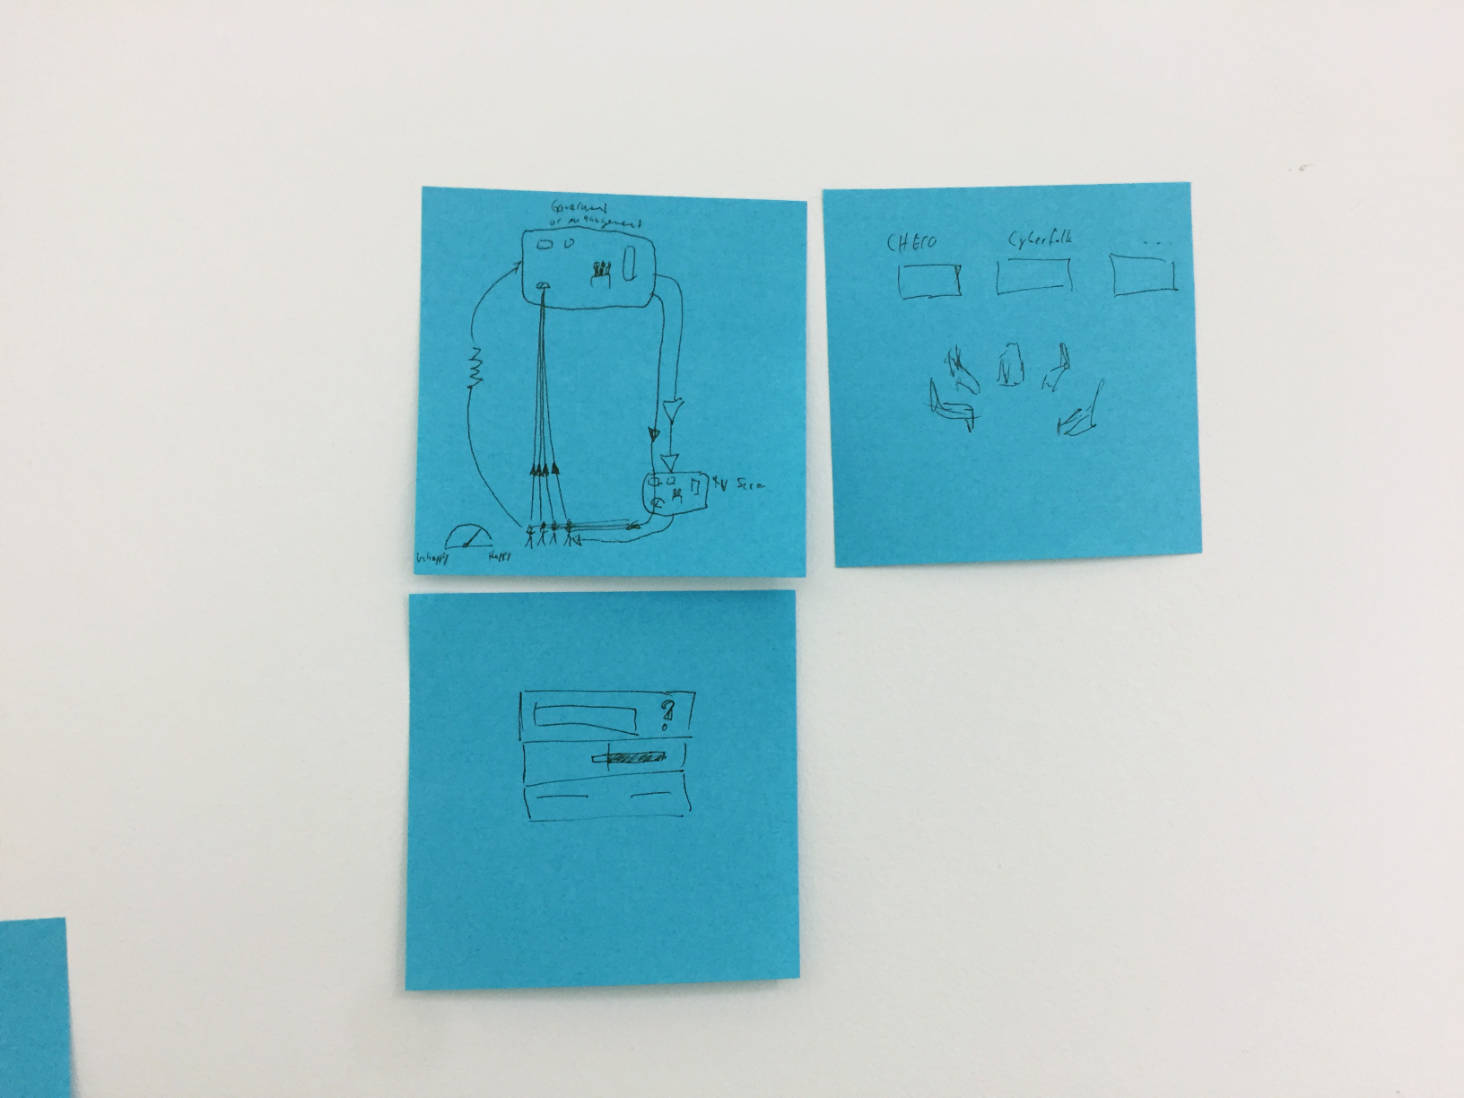 Government
or management
TV Screen
Unhappy
Happy
CHECO
Cyberfolk
...
?